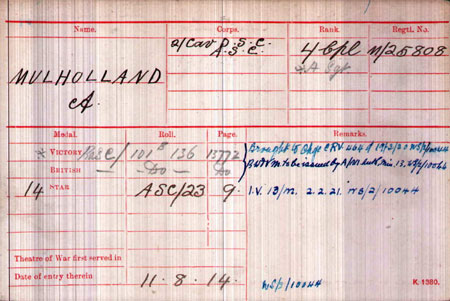 Name. Corps. Rank. Regtl. No.
2/Cav D.S.C. 4 Cpl M/25808
A.S.C. A Sgt
MULHOLLAND
A.
Medal. Roll. Page. Remarks.
* VICTORY RASC/ 101B 136 13772
BRITISH — Do — Do
14 STAR ASC/23 9. I.V. 13/m. 2.2.21. NS/2/10044
Theatre of War first served in
Date of entry therein 11. 8. 14. NS/2/10044
K 1380.